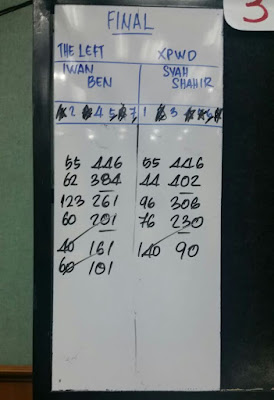 3
FINAL
THE LEFT XPWD
IWAN SYAH
BEN SHAHIR
2 4 5 7 1 3
55 446 55 446
62 384 44 402
123 261 96 306
60 201 76 230
40 161 140 90
60 101